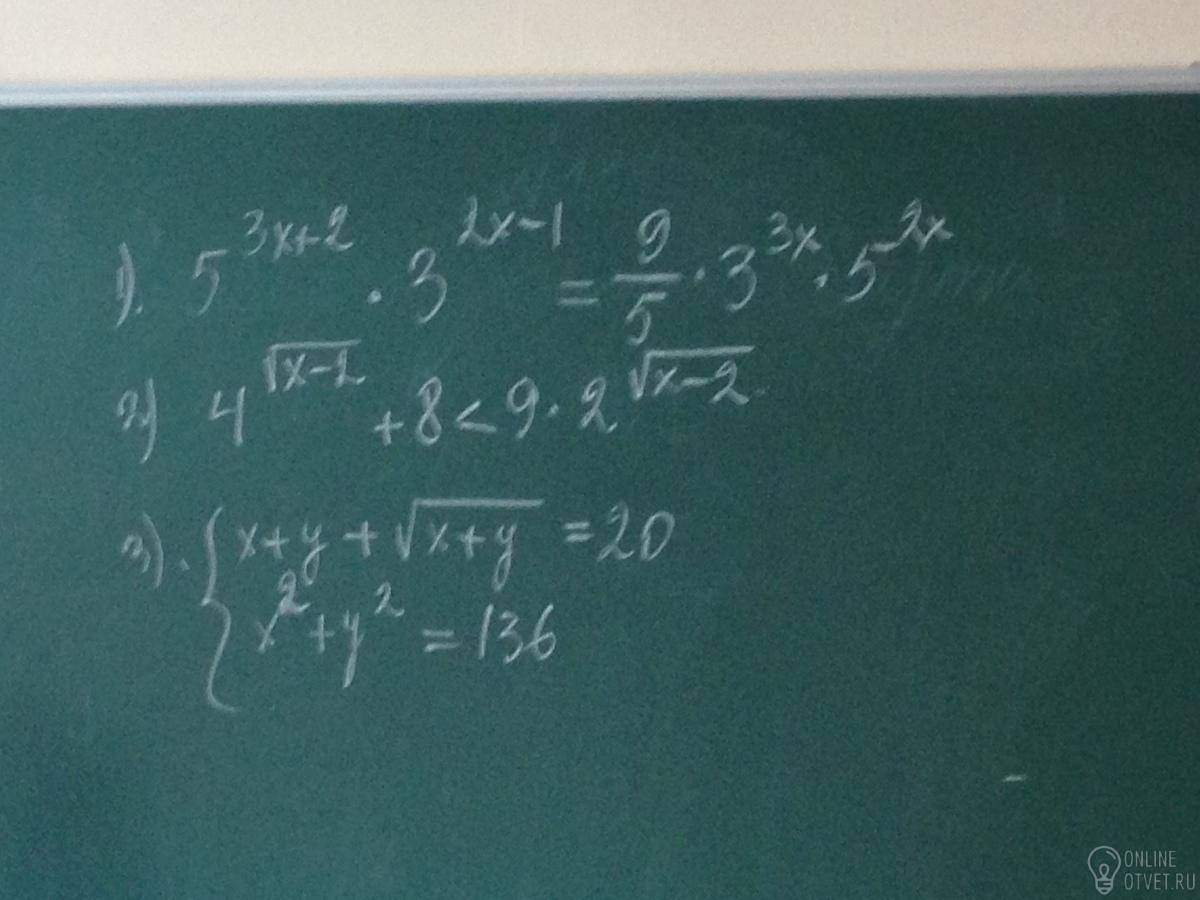 1). 5^{3x+2} · 3^{2x-1} = \frac{9}{5} · 3^{3x} · 5^{2x}
2) 4^{\sqrt{x-2}} + 8 < 9 · 2^{\sqrt{x-2}}
3). { x+y+\sqrt{x+y} = 20
x^2+y^2 = 136
ONLINE
OTVET.RU